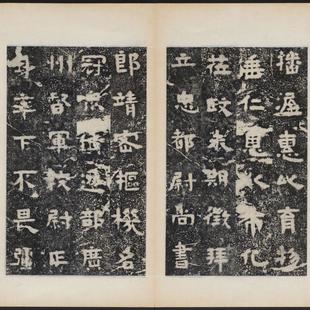 播渥惠以育物
垂仁恩以布化
莅政未期徵拜
立忠都尉尚書
郎靖密樞機名
冠衆僚遷部廣
川督軍校尉正
身率下不畏彊